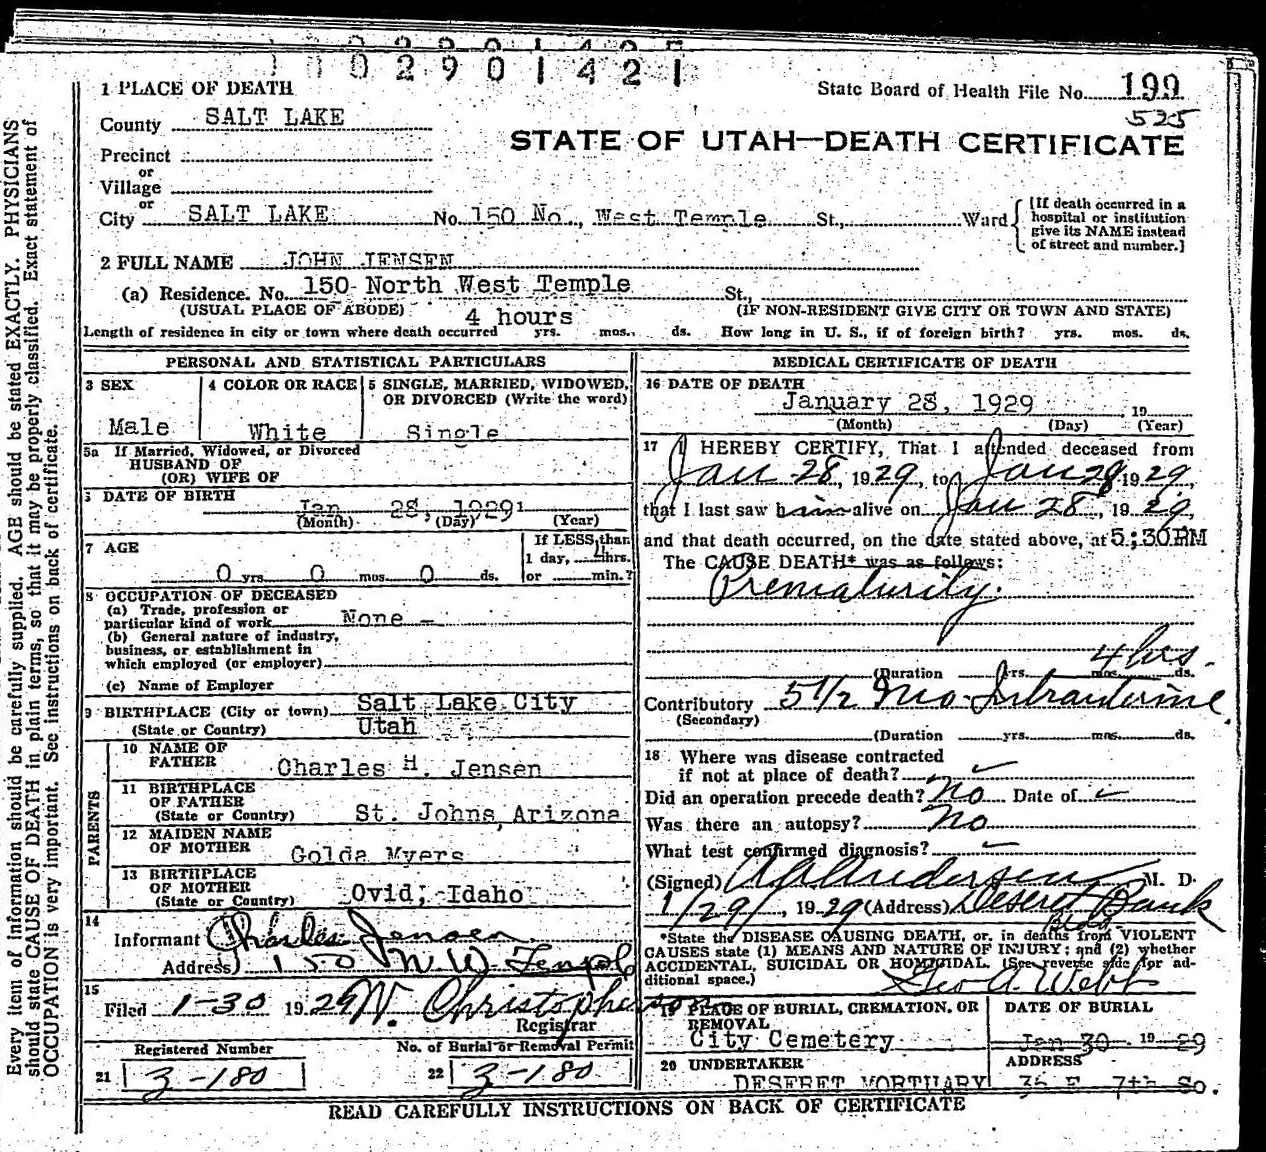 002901421
1 PLACE OF DEATH
State Board of Health File No. 199
525
County SALT LAKE
STATE OF UTAH—DEATH CERTIFICATE
Precinct
or
Village
or
City SALT LAKE No. 150 No., West Temple St., Ward
[If death occurred in a hospital or institution give its NAME instead of street and number.]
2 FULL NAME JOHN JENSEN
(a) Residence. No. 150 North West Temple St.,
(USUAL PLACE OF ABODE) (IF NON-RESIDENT GIVE CITY OR TOWN AND STATE)
4 hours
Length of residence in city or town where death occurred yrs. mos., ds. How long in U. S., if of foreign birth? yrs. mos. ds.
PERSONAL AND STATISTICAL PARTICULARS
3 SEX
Male
4 COLOR OR RACE
White
5 SINGLE, MARRIED, WIDOWED,
OR DIVORCED (Write the word)
Single
5a If Married, Widowed, or Divorced
HUSBAND OF
(OR) WIFE OF
6 DATE OF BIRTH
Jan 28, 1929
(Month) (Day) (Year)
7 AGE
0 yrs 0 mos 0 ds.
If LESS than
1 day, 4 hrs.
or min.?
8 OCCUPATION OF DECEASED
(a) Trade, profession or
particular kind of work None -
(b) General nature of industry,
business, or establishment in
which employed (or employer)
(c) Name of Employer
9 BIRTHPLACE (City or town) Salt Lake City
(State or Country) Utah
PARENTS
10 NAME OF
FATHER Charles H. Jensen
11 BIRTHPLACE
OF FATHER
(State or Country) St. Johns, Arizona
12 MAIDEN NAME
OF MOTHER Golda Myers
13 BIRTHPLACE
OF MOTHER
(State or Country) Ovid, Idaho
14
Informant Charles Jensen
Address 150 N W Templ
15
Filed 1-30 1929 W. Christopherson
Registrar
Registered Number
21 3-180
No. of Burial or Removal Permit
22 3-180
MEDICAL CERTIFICATE OF DEATH
16 DATE OF DEATH
January 28, 1929 19
(Month) (Day) (Year)
17 I HEREBY CERTIFY, That I attended deceased from
Jan 28, 1929, to Jan 28 1929,
that I last saw him alive on Jan 28, 1929,
and that death occurred, on the date stated above, at 5:30 PM
The CAUSE DEATH* was as follows:
Prematurity.
4 hrs.
(Duration yrs. mos. ds.
Contributory 5 1/2 mo Intrauterine
(Secondary)
(Duration yrs. mos. ds.
18 Where was disease contracted
if not at place of death?
Did an operation precede death? No Date of
Was there an autopsy? No
What test confirmed diagnosis?
(Signed) Andersen M. D.
1/29/, 1929 (Address) Deseret Bank
Bldg
*State the DISEASE CAUSING DEATH, or, in deaths from VIOLENT
CAUSES state (1) MEANS AND NATURE OF INJURY; and (2) whether
ACCIDENTAL, SUICIDAL OR HOMICIDAL. (See reverse side for ad-
ditional space.)
Geo A. Webb
19 PLACE OF BURIAL, CREMATION, OR
REMOVAL
City Cemetery
DATE OF BURIAL
Jan 30 1929
20 UNDERTAKER
DESERET MORTUARY
ADDRESS
36 E 7th So.
READ CAREFULLY INSTRUCTIONS ON BACK OF CERTIFICATE
Every item of information should be carefully supplied. AGE should be stated EXACTLY. PHYSICIANS
should state CAUSE OF DEATH in plain terms, so that it may be properly classified. Exact statement of
OCCUPATION is very important. See instructions on back of certificate.